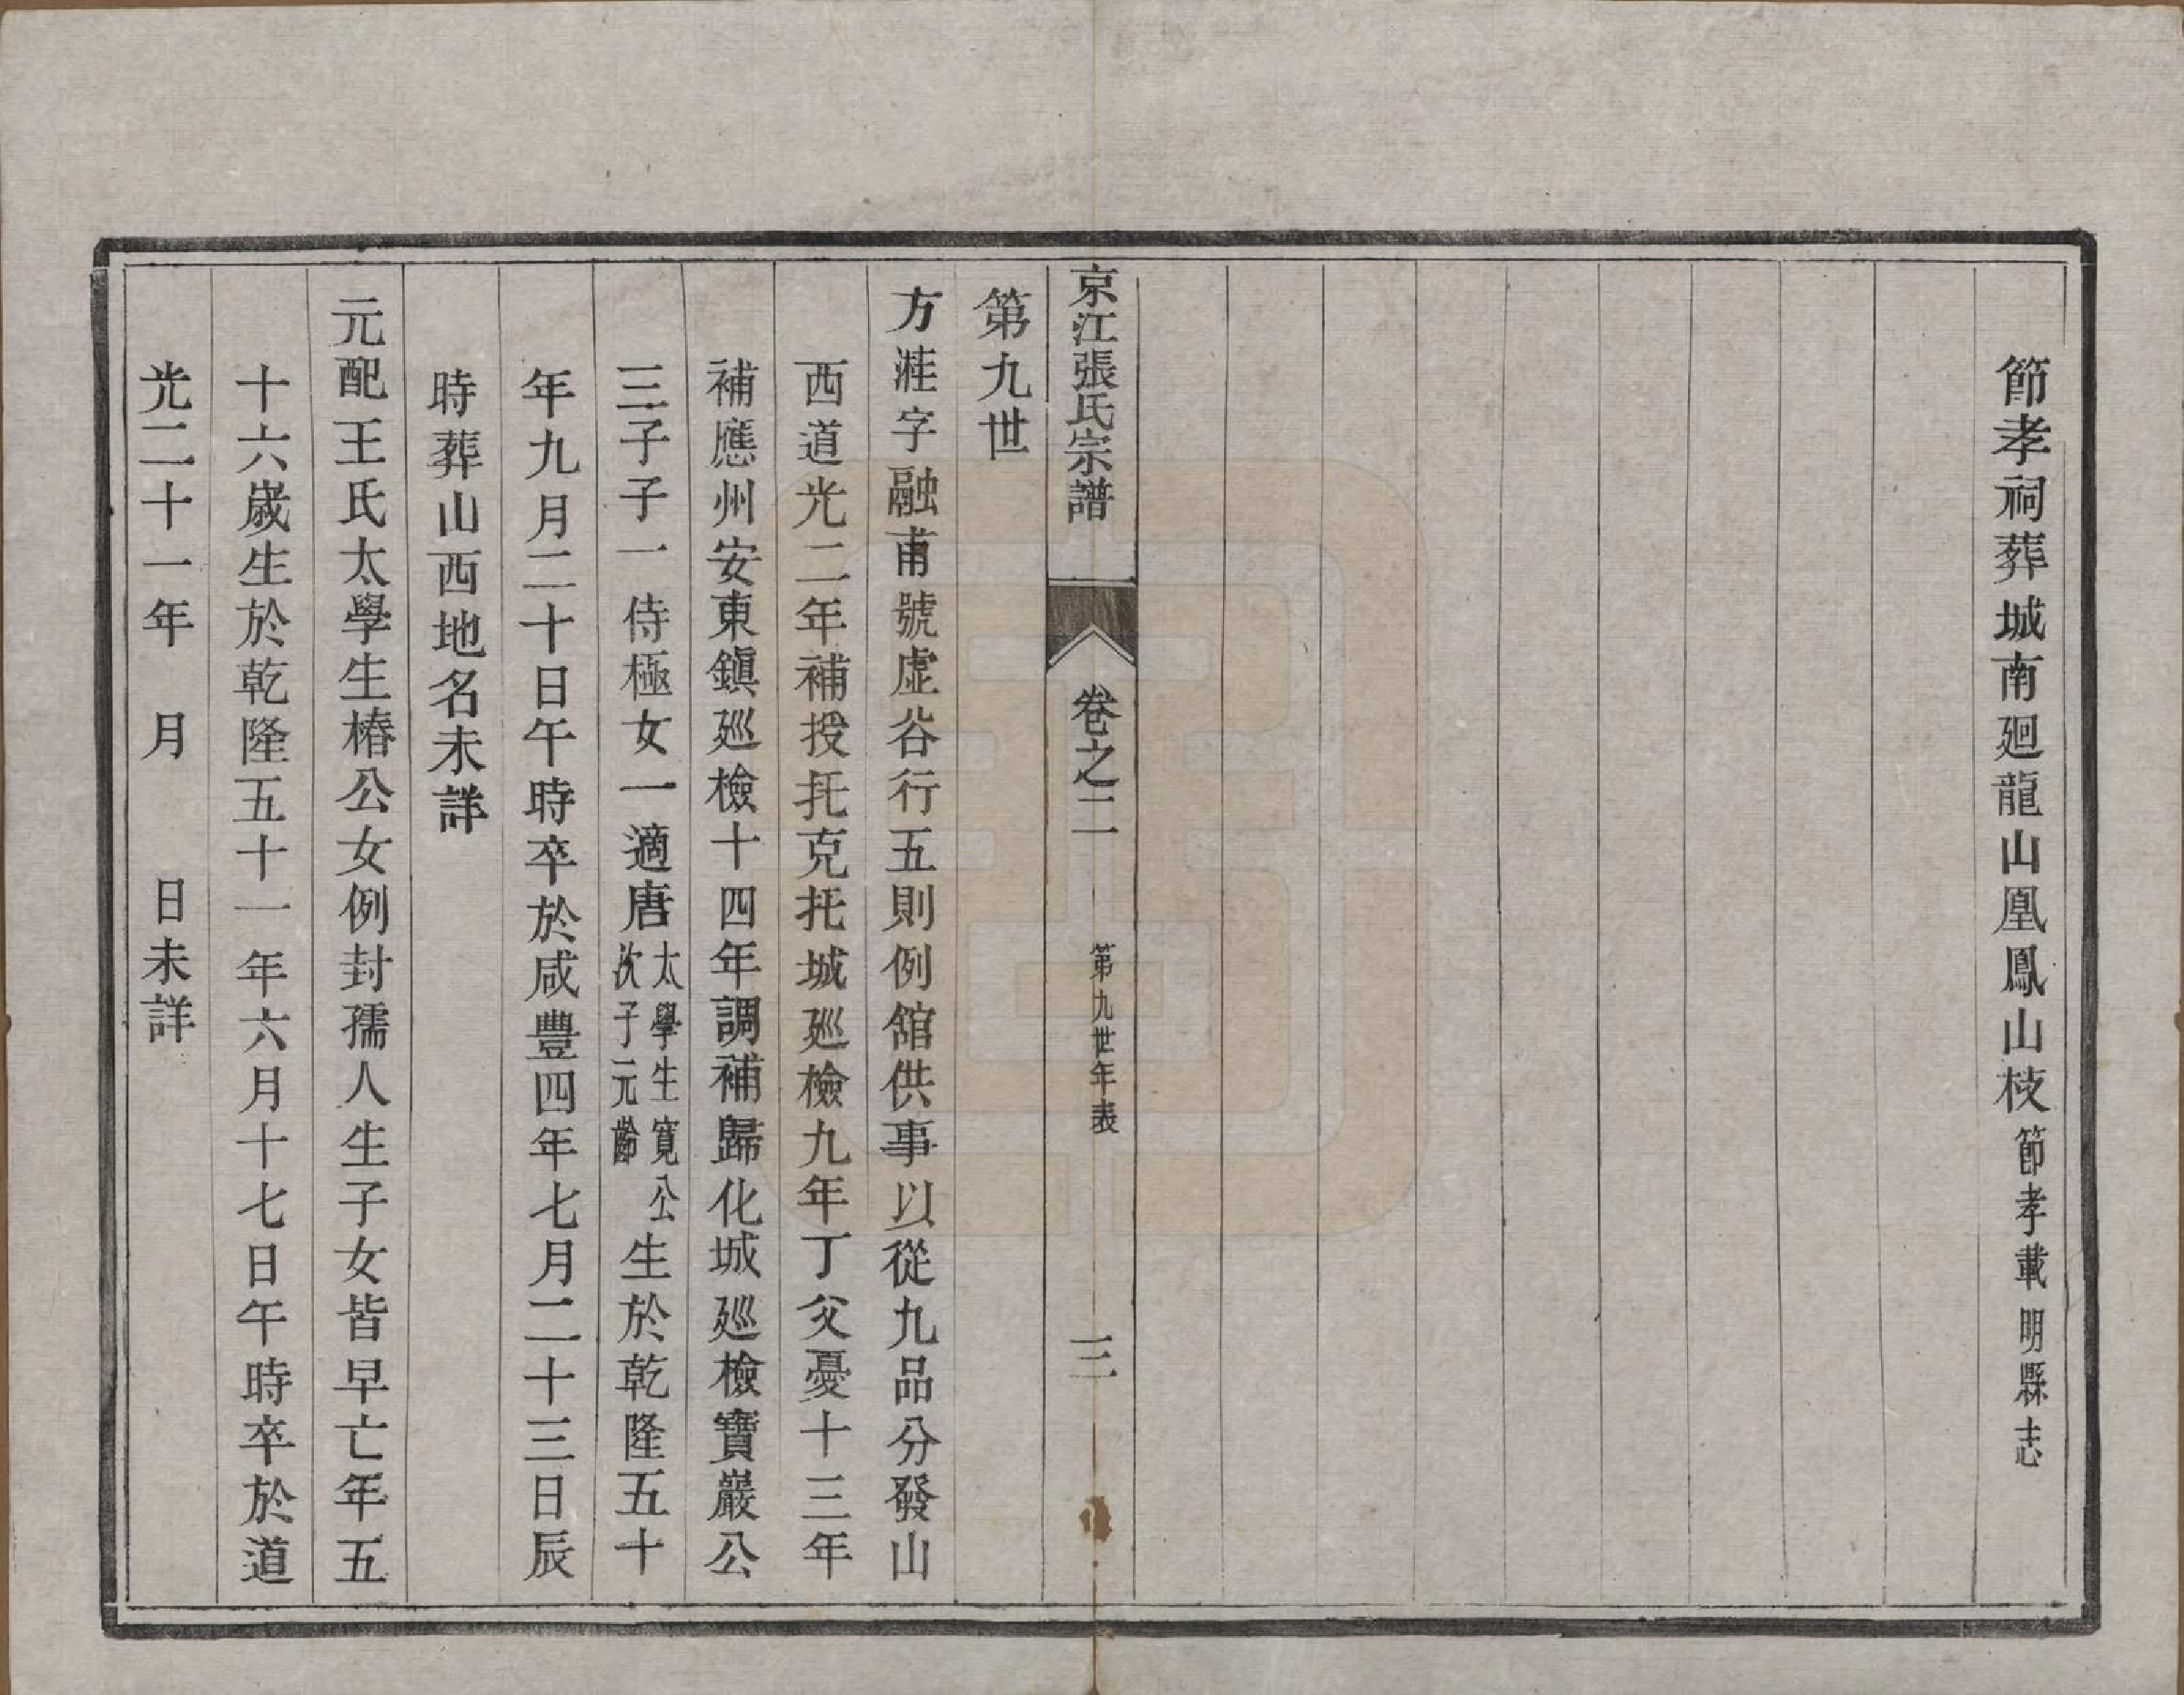 節孝祠葬城南廻龍山凰鳳山枝節孝載明縣志
京江張氏宗譜 卷之二 第九世年表 三
第九世
方溎字融甫號虛谷行五則例館供事以從九品分發山
西道光二年補授托克托城廵檢九年丁父憂十三年
補應州安東鎭廵檢十四年調補歸化城廵檢寶巖公
三子子一侍極女一適唐太學生寬公次子元齡生於乾隆五十
年九月二十日午時卒於咸豐四年七月二十三日辰
時葬山西地名未詳
元配王氏太學生椿公女例封孺人生子女皆早亡年五
十六歲生於乾隆五十一年六月十七日午時卒於道
光二十一年 月 日未詳